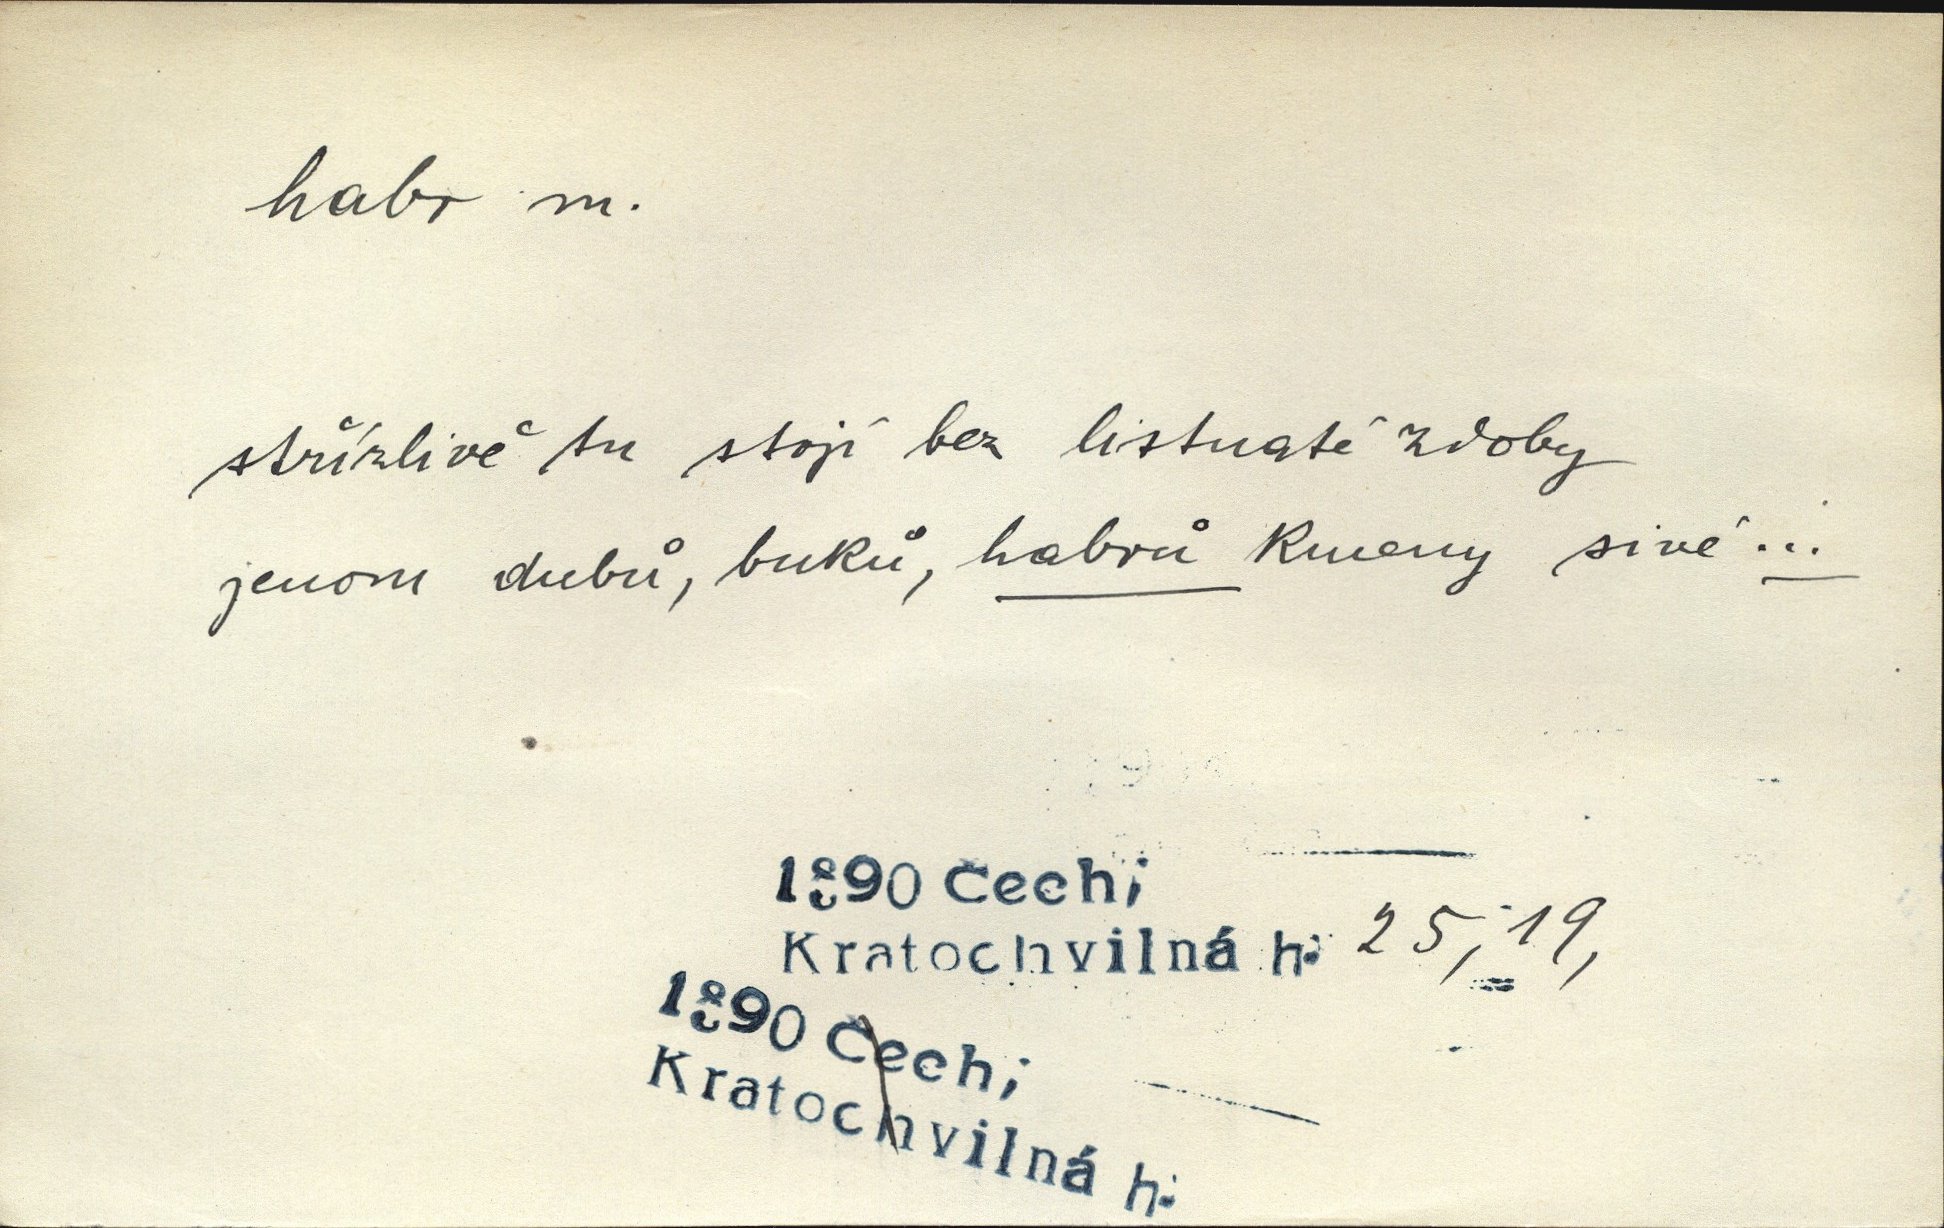 habr m.
střízlivě tu stojí bez listnaté zdoby
jenom dubů, buků, habrů kmeny sivé...
1890 Čech;
Kratochvilná h: 25, 19,
1890 Čech;
Kratochvilná h: